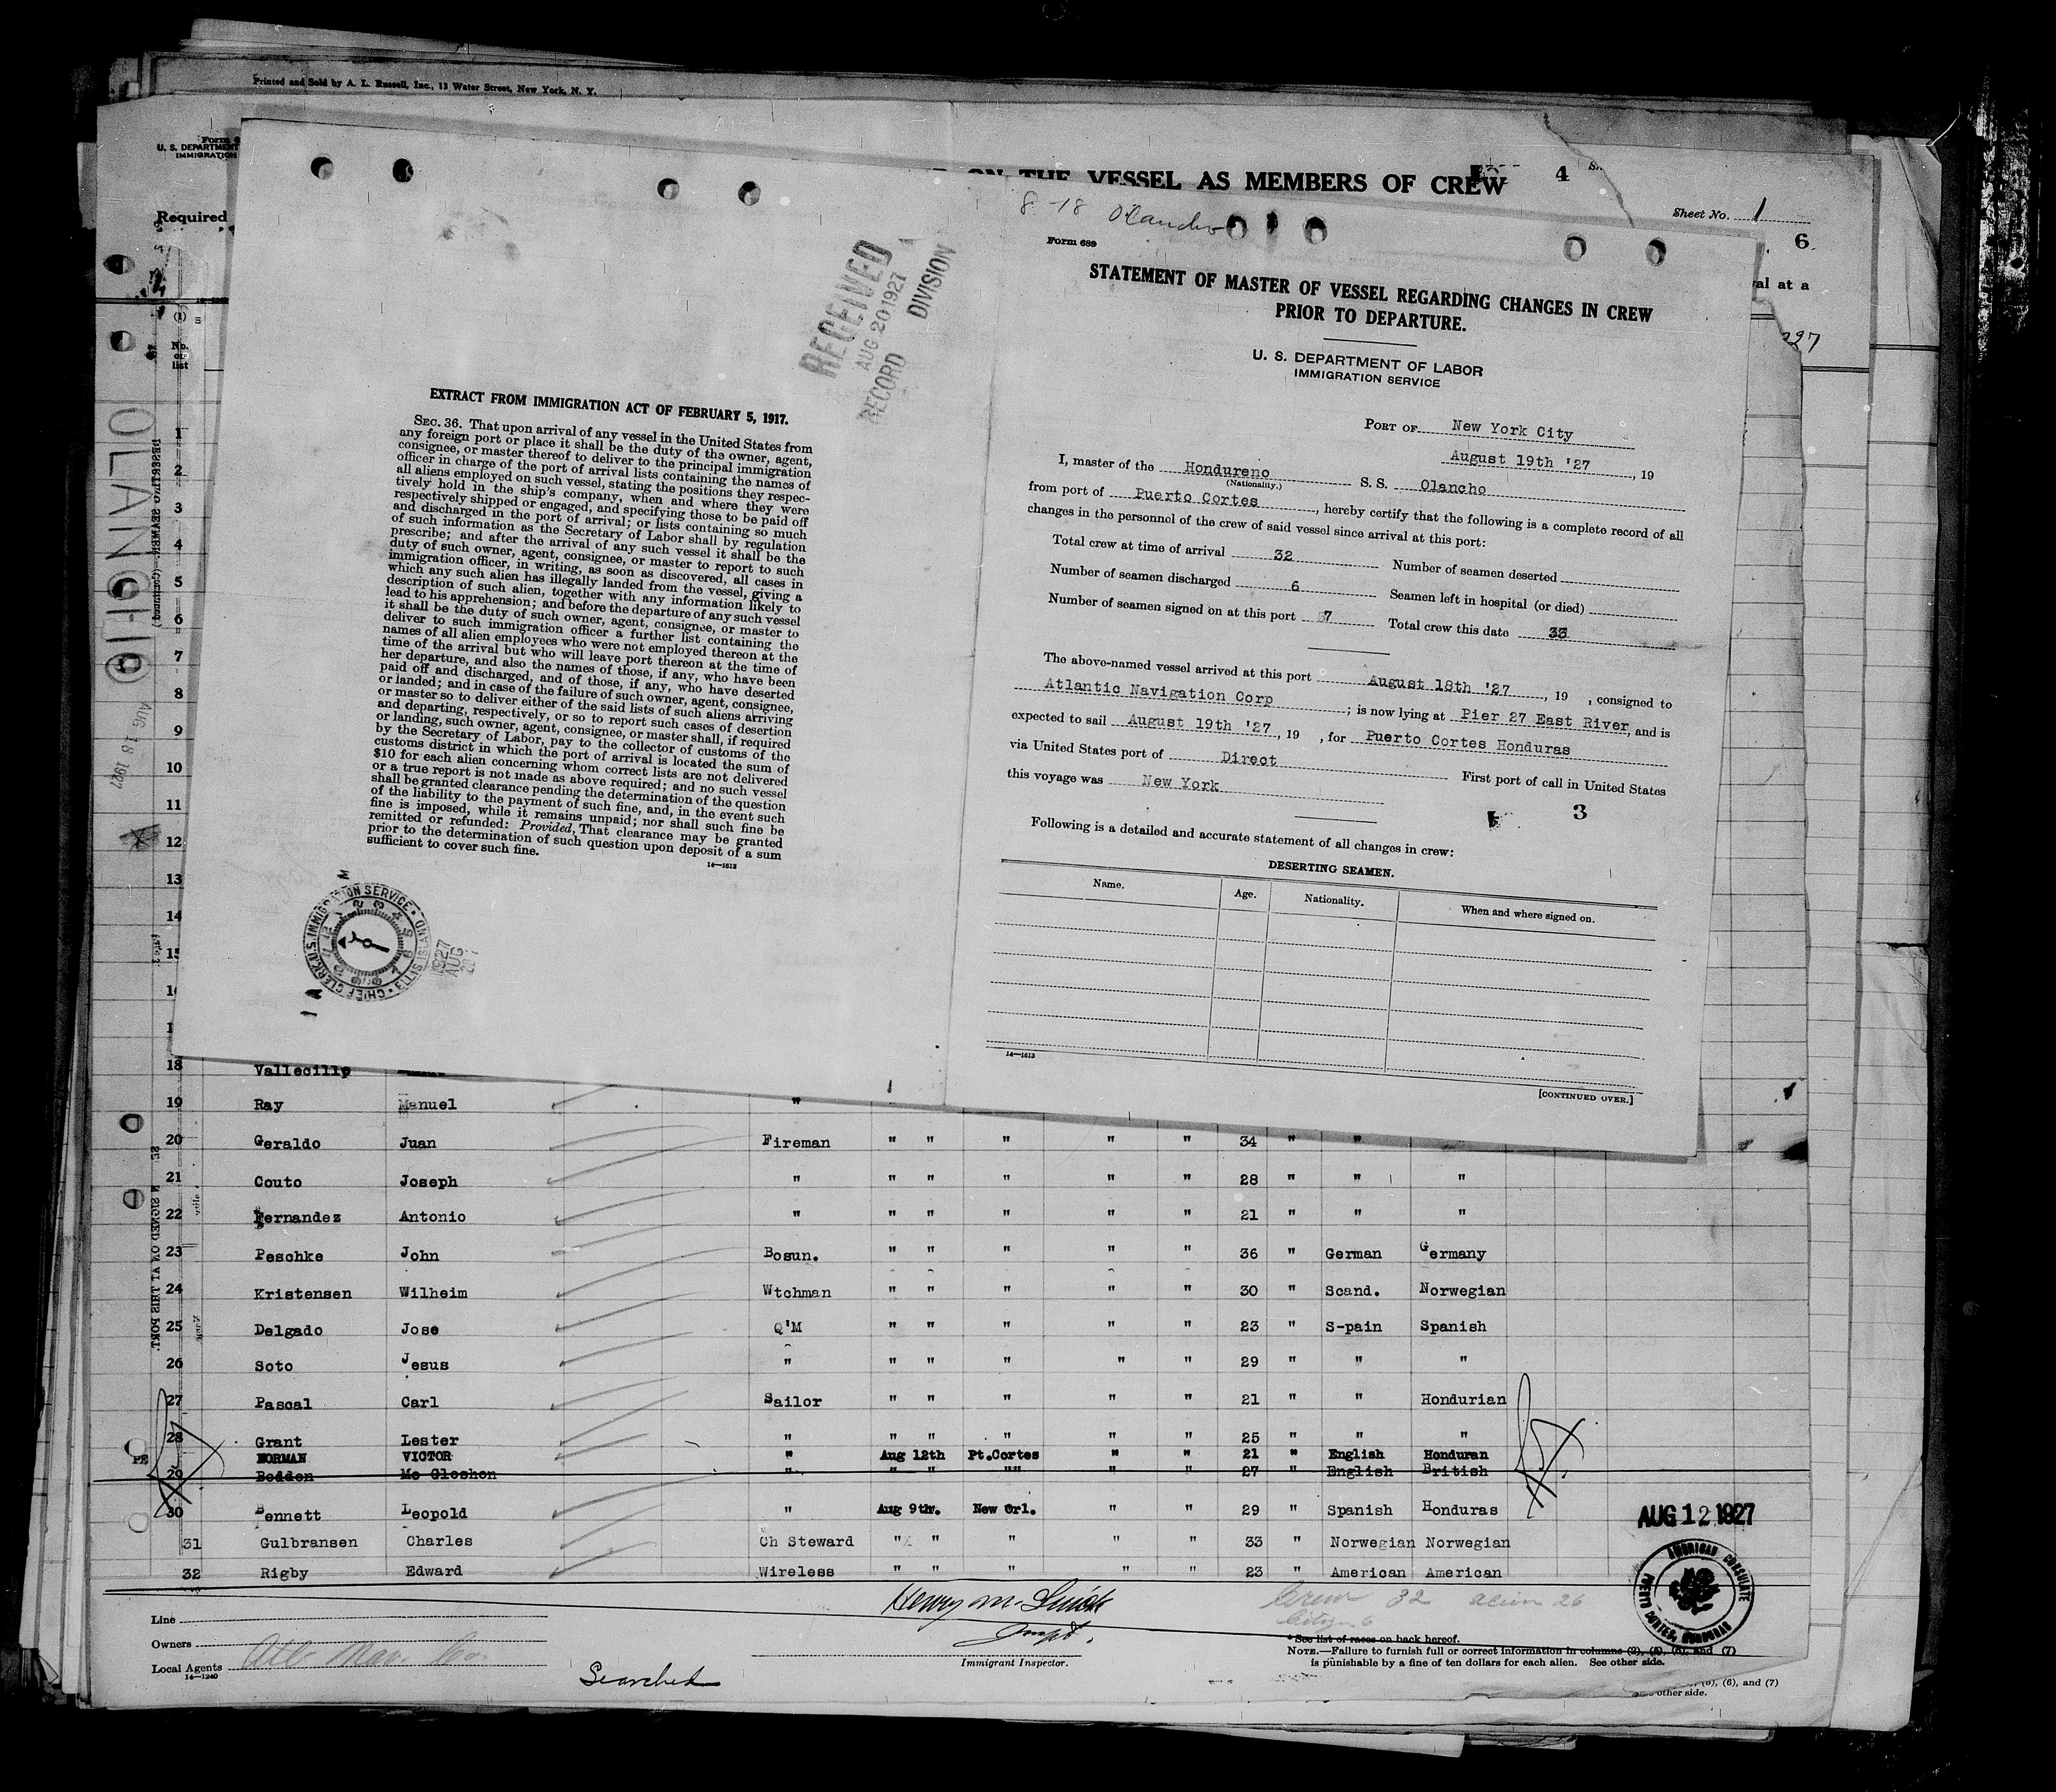 Printed and Sold by A. L. Russell, Inc., 13 Water Street, New York, N. Y.
U. S. DEPARTMENT
IMMIGRATION
ON THE VESSEL AS MEMBERS OF CREW
4
Required
Sheet No. 1
6
val at a
No.
on
list
OLANCHO
AUG 18 1927
DESERTING SEAMEN—(Continued)
RECEIVED
AUG 20 1927
RECORD DIVISION
EXTRACT FROM IMMIGRATION ACT OF FEBRUARY 5, 1917.
SEC. 36. That upon arrival of any vessel in the United States from
any foreign port or place it shall be the duty of the owner, agent,
consignee, or master thereof to deliver to the principal immigration
officer in charge of the port of arrival lists containing the names of
all aliens employed on such vessel, stating the positions they respec-
tively hold in the ship's company, when and where they were
respectively shipped or engaged, and specifying those to be paid off
and discharged in the port of arrival; or lists containing so much
of such information as the Secretary of Labor shall by regulation
prescribe; and after the arrival of any such vessel it shall be the
duty of such owner, agent, consignee, or master to report to such
immigration officer, in writing, as soon as discovered, all cases in
which any such alien has illegally landed from the vessel, giving a
description of such alien, together with any information likely to
lead to his apprehension; and before the departure of any such vessel
it shall be the duty of such owner, agent, consignee, or master to
deliver to such immigration officer a further list containing the
names of all alien employees who were not employed thereon at the
time of the arrival but who will leave port thereon at the time of
her departure, and also the names of those, if any, who have been
paid off and discharged, and of those, if any, who have deserted
or landed; and in case of the failure of such owner, agent, consignee,
or master so to deliver either of the said lists of such aliens arriving
and departing, respectively, or so to report such cases of desertion
or landing, such owner, agent, consignee, or master shall, if required
by the Secretary of Labor, pay to the collector of customs of the
customs district in which the port of arrival is located the sum of
$10 for each alien concerning whom correct lists are not delivered
or a true report is not made as above required; and no such vessel
shall be granted clearance pending the determination of the question
of the liability to the payment of such fine, and, in the event such
fine is imposed, while it remains unpaid; nor shall such fine be
remitted or refunded: Provided, That clearance may be granted
prior to the determination of such question upon deposit of a sum
sufficient to cover such fine.
14—1613
CHIEF CLERK U.S. IMMIGRATION SERVICE ELLIS ISLAND
1927
AUG
20
8-18 Olancho
Form 689
STATEMENT OF MASTER OF VESSEL REGARDING CHANGES IN CREW
PRIOR TO DEPARTURE.
U. S. DEPARTMENT OF LABOR
IMMIGRATION SERVICE
PORT OF New York City
August 19th '27, 19
I, master of the Hondureno S. S. Olancho
(Nationality.)
from port of Puerto Cortes, hereby certify that the following is a complete record of all
changes in the personnel of the crew of said vessel since arrival at this port:
Total crew at time of arrival 32 Number of seamen deserted
Number of seamen discharged 6 Seamen left in hospital (or died)
Number of seamen signed on at this port 7 Total crew this date 33
The above-named vessel arrived at this port August 18th '27, 19 , consigned to
Atlantic Navigation Corp ; is now lying at Pier 27 East River, and is
expected to sail August 19th '27, 19 , for Puerto Cortes Honduras
via United States port of Direct First port of call in United States
this voyage was New York
3
Following is a detailed and accurate statement of all changes in crew:
DESERTING SEAMEN.
Name. Age. Nationality. When and where signed on.
14—1613
[CONTINUED OVER.]
1
2
3
4
5
6
7
8
9
10
11
12
13
14
18 Vallecillo
19 Ray Manuel "
20 Geraldo Juan Fireman " " " " " 34 " "
21 Couto Joseph " " " " " " 28 " " "
22 Fernandez Antonio " " " " " " 21 " " "
23 Peschke John Bosun. " " " " " 36 " German Germany
24 Kristensen Wilheim Wtchman " " " " " 30 " Scand. Norwegian
25 Delgado Jose Q'M " " " " " 23 " S-pain Spanish
26 Soto Jesus " " " " " " 29 " " "
27 Pascal Carl Sailor " " " " " 21 " " Hondurian
28 Grant Lester " " " " " " 25 " " "
NORMAN VICTOR " Aug 12th Pt.Cortes " " 21 " English Honduran
29 Bodden Mc Gloshon " " " "" " " 27 " English British
30 Bennett Leopold " Aug 9th. New Orl. " " 29 " Spanish Honduras
31 Gulbransen Charles Ch Steward " " " " " 33 " Norwegian Norwegian
32 Rigby Edward Wireless " " " " " 23 " American American
AUG 12 1927
AMERICAN CONSULATE
PUERTO CORTES, HONDURAS
Line
Owners
Local Agents
14—1240
Searched
Immigrant Inspector.
Crew 32 alien 26
Citizen 6
* See list of races on back hereof.
NOTE.—Failure to furnish full or correct information in columns (2), (5), (6), and (7)
is punishable by a fine of ten dollars for each alien. See other side.
(6), and (7)
other side.